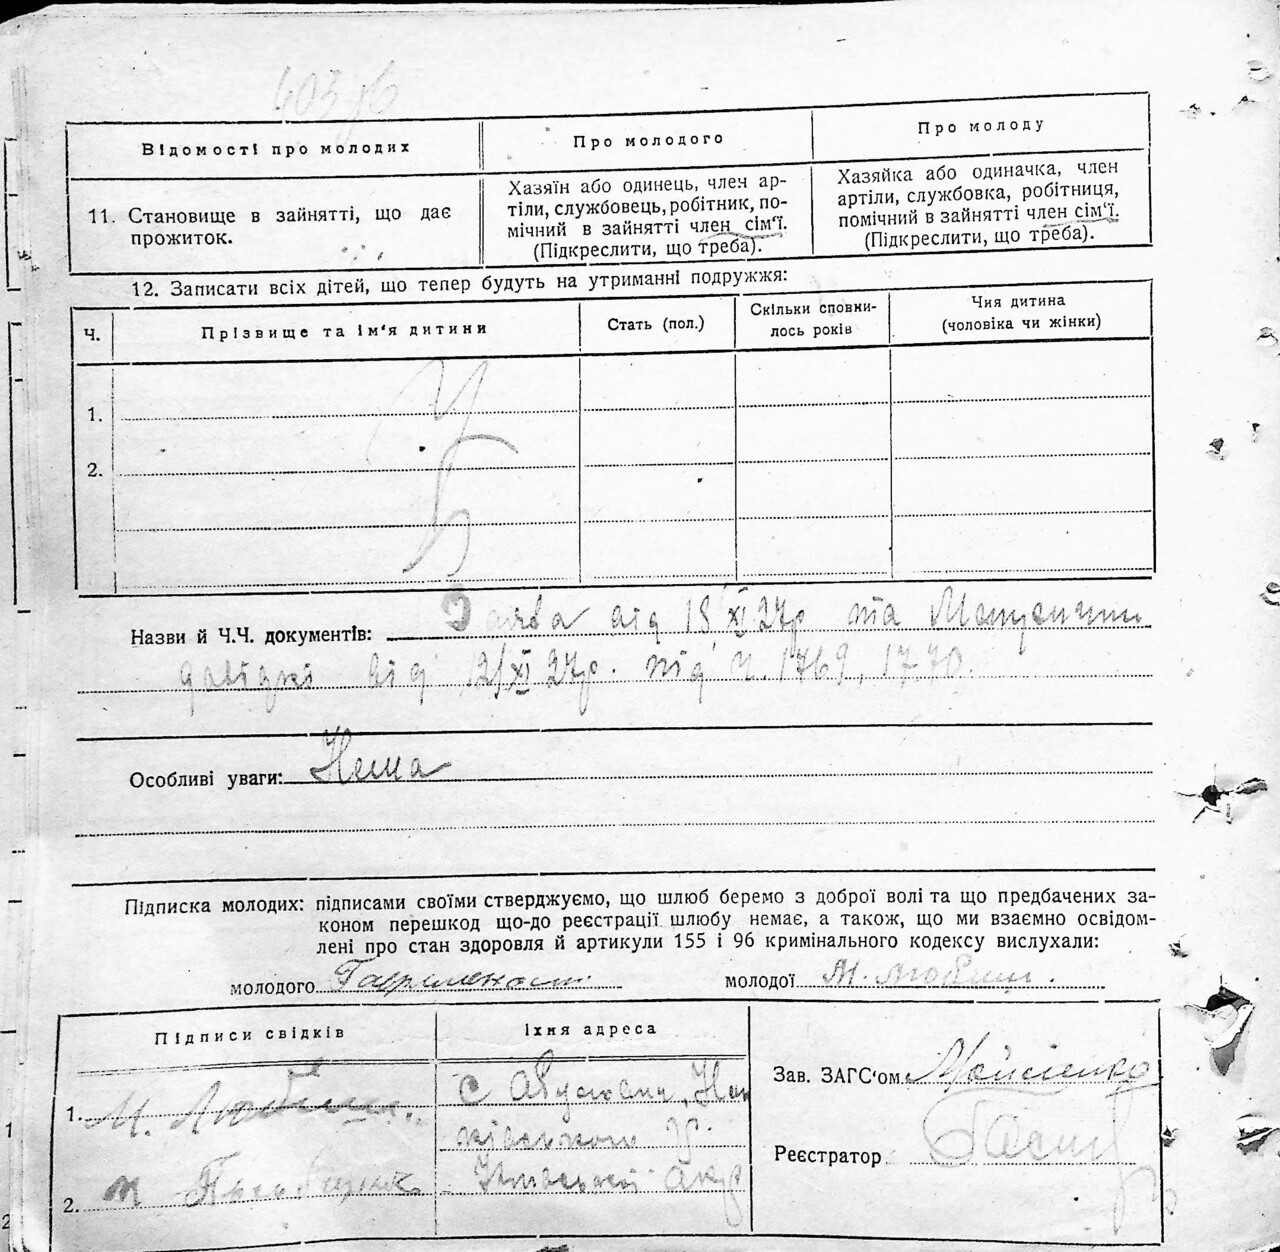 Відомості про молодих
Про молодого
Про молоду
11. Становище в зайнятті, що дає
прожиток.
Хазяїн або одинець, член ар-
тіли, службовець, робітник, по-
мічний в зайнятті член сім'ї.
(Підкреслити, що треба).
Хазяйка або одиначка, член
артіли, службовка, робітниця,
помічний в зайнятті член сім'ї.
(Підкреслити, що треба).
12. Записати всіх дітей, що тепер будуть на утриманні подружжя:
Ч.
Прізвище та ім'я дитини
Стать (пол.)
Скільки сповни-
лось років
Чия дитина
(чоловіка чи жінки)
1.
2.
Назви й Ч.Ч. документів: Заява від 15/XI 27р та
довідки від 12/XI 27р. під ч. 1769, 1770.
Особливі уваги: Нема
Підписка молодих: підписами своїми стверджуємо, що шлюб беремо з доброї волі та що предбачених за-
коном перешкод що-до реєстрації шлюбу немає, а також, що ми взаємно освідом-
лені про стан здоровля й артикули 155 і 96 кримінального кодексу вислухали:
молодого
молодої М.
Підписи свідків
Їхня адреса
1. М.
с
2.
Зав. ЗАГС'ом Мойсієнко
Реєстратор